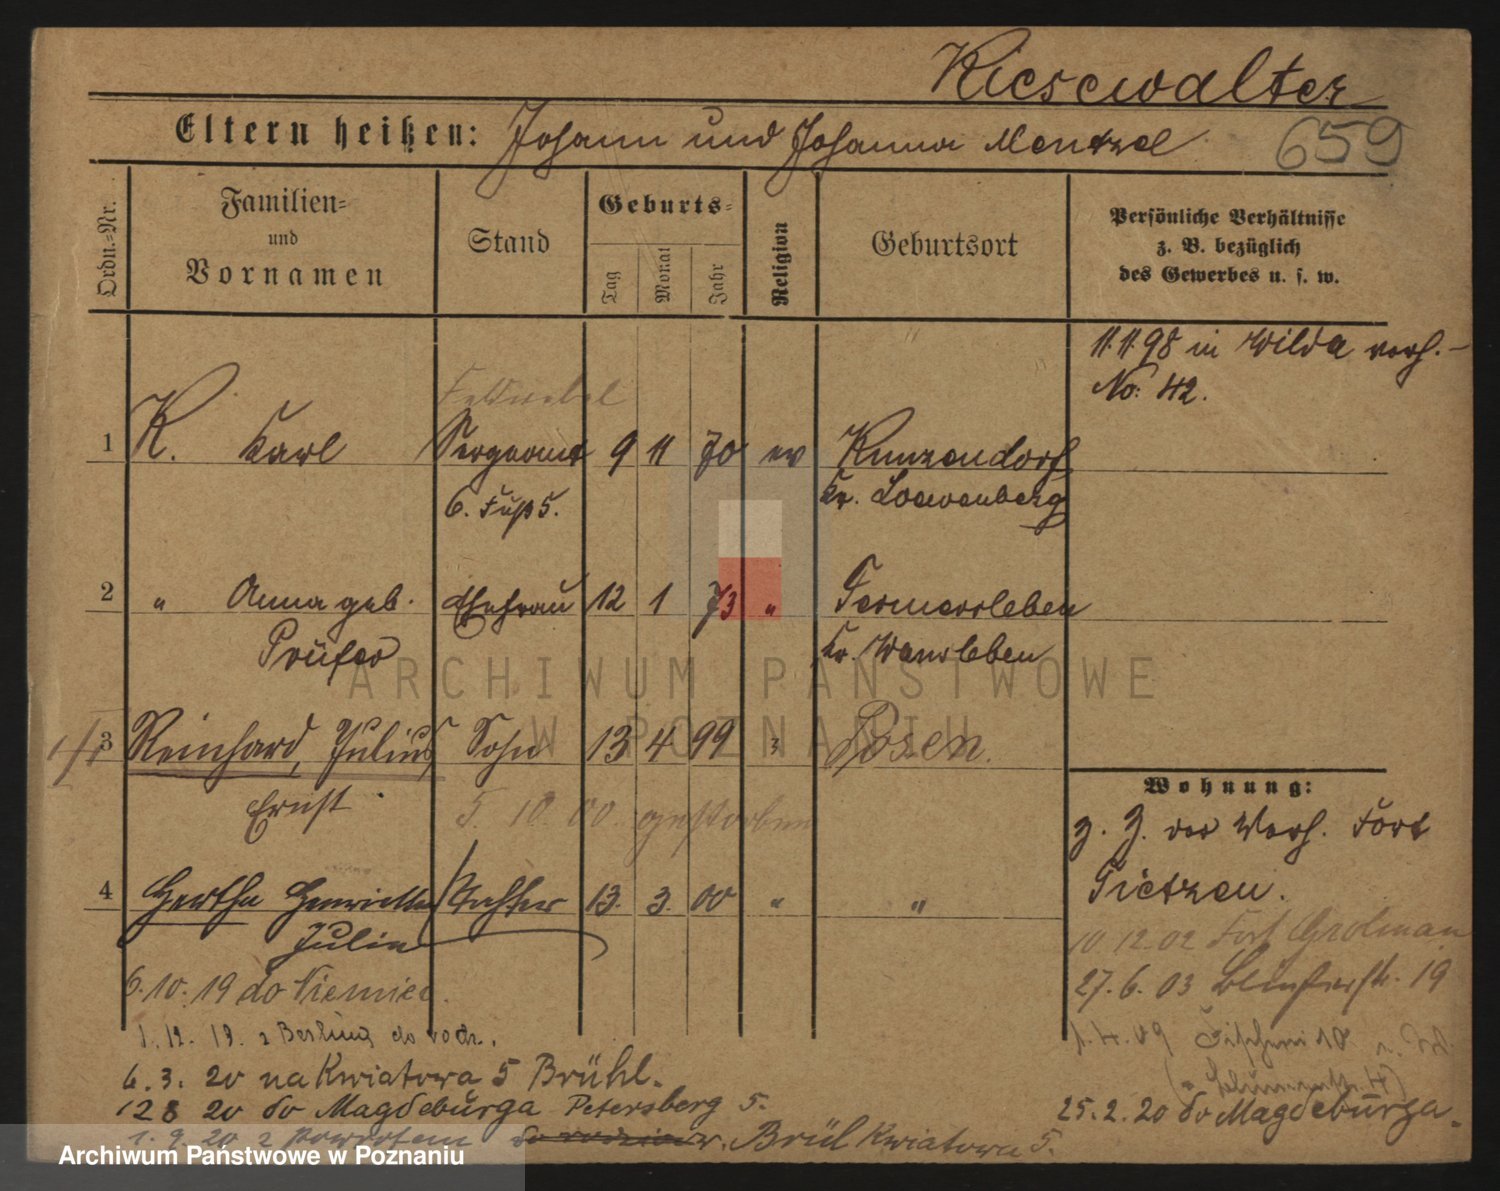 Kiesewalter
Eltern heißen: Johann und Johanna Mentzel
659
Ordn.=Nr.
Familien=
und
Vornamen
Stand
Geburts=
Tag
Monat
Jahr
Religion
Geburtsort
Persönliche Verhältnisse
z. B. bezüglich
des Gewerbes u. s. w.
11.11.98 in Wilda verh. –
No: 42.
Feldwebel
1 K. Karl Sergeant 9 11 70 ev Kunzendorf
6. Fuß 5. Kr. Loewenberg
2 " Anna geb. Ehefrau 12 1 73 " Fermersleben
Prüfer Kr. Wansleben
3 Reinhard, Julius Sohn 13 4 99 Posen.
Ernst 5. 10. 00. gestorben
4 Hertha Henriette Tochter 13. 3. 00 " "
Julie
Wohnung:
z. Z. der Verh. Fort
Tietzen.
10.12.02 Fort Grolman
27.6.03 19
1.4.09 10
25.2.20 do Magdeburga.
6.10.19 do Niemiec.
1.12.19. z Berlina do rodz.
6.3. 20 na Kwiatowa 5 Brühl.
12 8 20 do Magdeburga Petersberg 5.
1. 9. 20 z powrotem do rodziców. Brül Kwiatowa 5.
ARCHIWUM PAŃSTWOWE
W POZNANIU
Archiwum Państwowe w Poznaniu